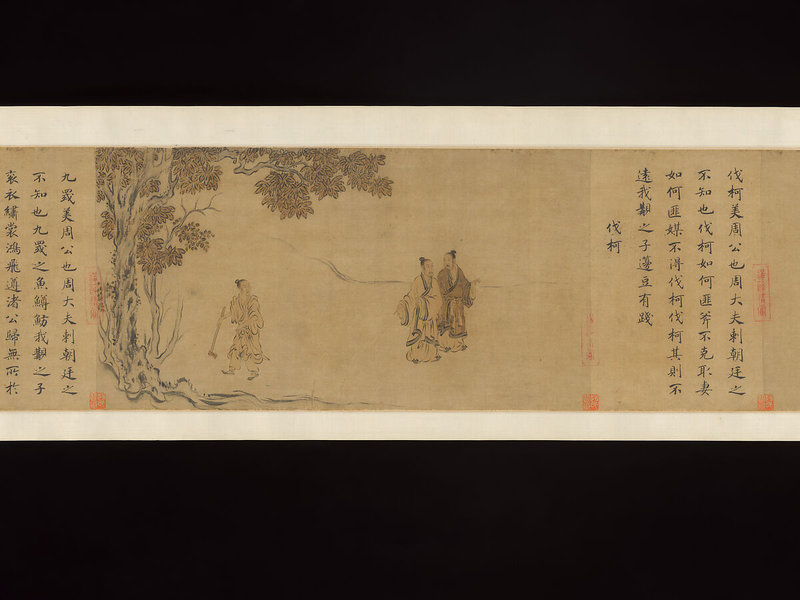 伐柯美周公也周大夫刺朝廷之
不知也伐柯如何匪斧不克取妻
如何匪媒不得伐柯伐柯其則不
遠我觏之子籩豆有踐
伐柯
九罭美周公也周大夫刺朝廷之
不知也九罭之魚鱒魴我觏之子
衮衣繡裳鴻飛遵渚公歸無所於